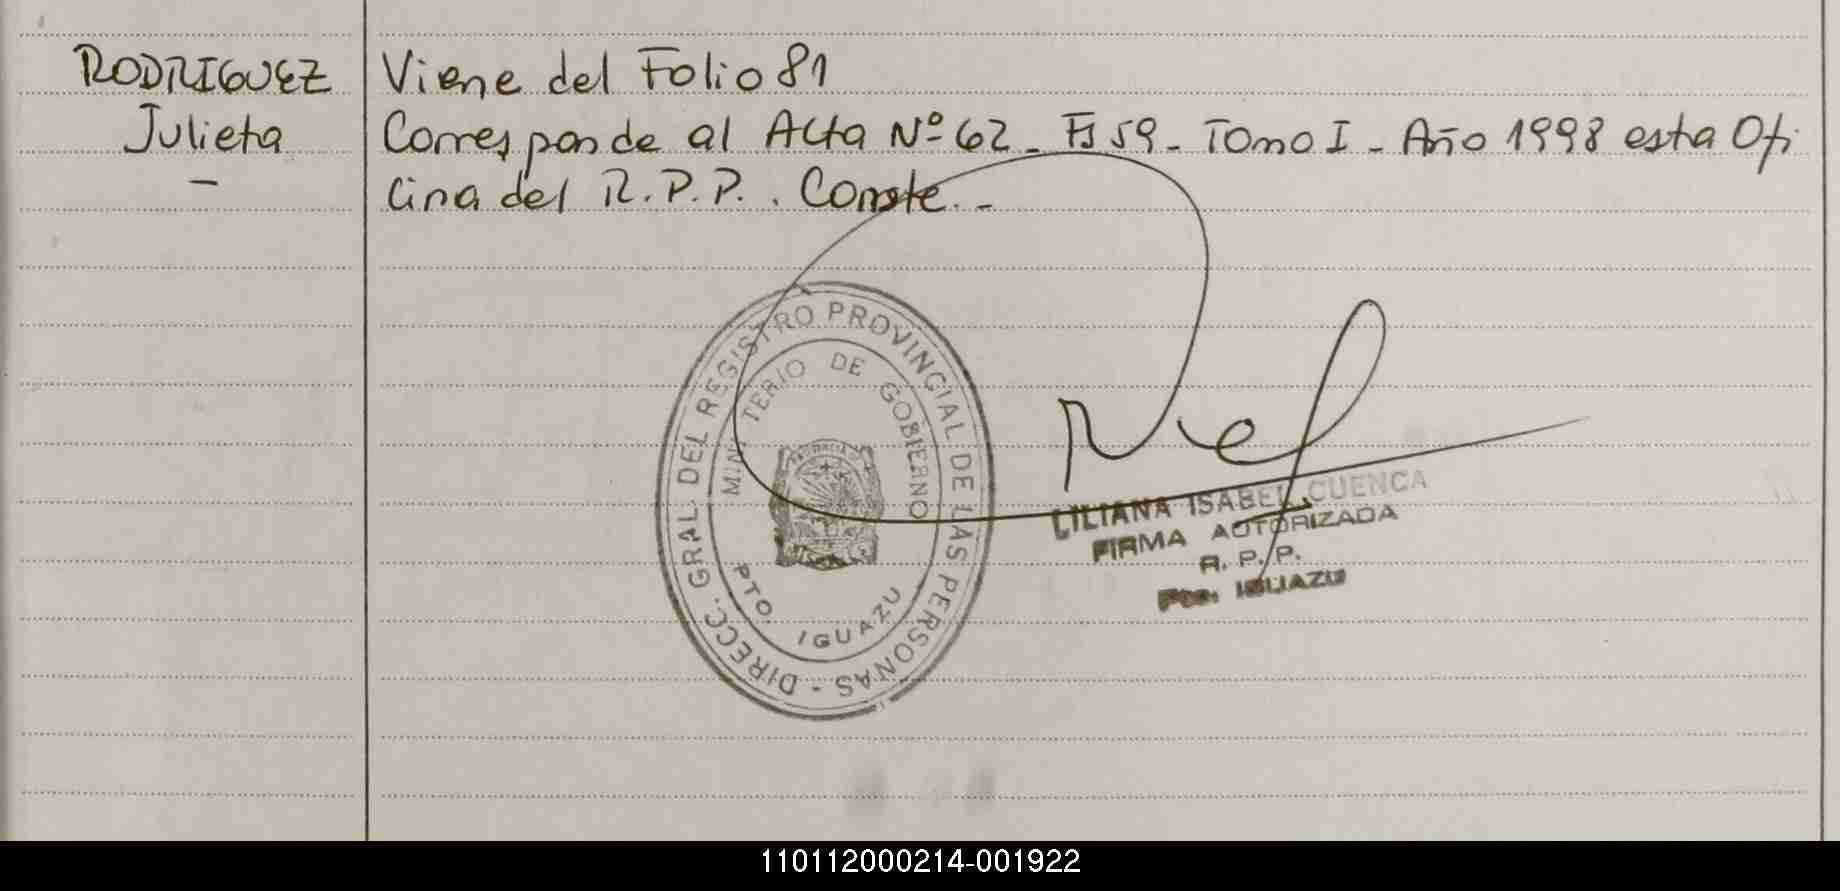 RODRIGUEZ
Julieta
-
Viene del Folio 81
Corresponde al Acta Nº 62 - Fj 59 - Tomo I - Año 1998 esta Ofi
cina del R.P.P. . Conste. -
DIRECC. GRAL. DEL REGISTRO PROVINCIAL DE LAS PERSONAS -
MINISTERIO DE GOBIERNO
PTO. IGUAZU
LILIANA ISABEL CUENCA
FIRMA AUTORIZADA
R. P. P.
Pto. IGUAZU
110112000214-001922